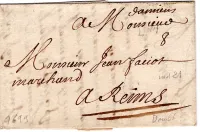 damiens
a Monsieur
8
Monsieur Jean faciot
marchand
a Reims